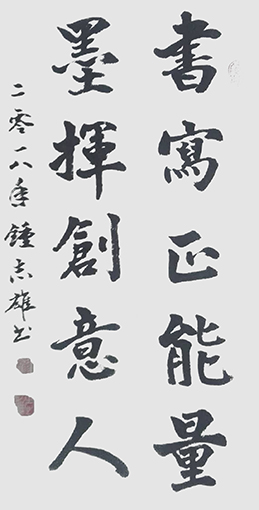 書寫正能量
墨揮創意人
二零一八年鍾志雄書